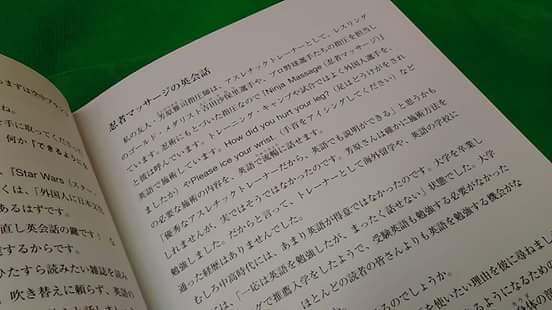 まずは空中ブラン
ね。
手に取ってください
何か「できるようにな
「Star Wars（スター・
くは、「外国人に日本文化
あるはずです。
直し英会話の鍵です」な
するからです。
ひたすら読みたい雑誌を読み
吹き替えに頼らず、英語の
忍者マッサージの英会話
私の友人・芳原雅司指圧師は、アスレチックトレーナーとして、レスリング
のゴールド・メダリスト吉田沙保里選手や、プロ野球選手たちの指圧を担当し
ています。忍術にもとづいた指圧なので「Ninja Massage（忍者マッサージ）」
と彼は呼んでいます。トレーニング・キャンプや試合ではよく外国人選手を、
英語で施術しています。How did you hurt your leg?（足はどうけがをされ
ましたか）やPlease ice your wrist.（手首をアイシングしてください）など
の必要な施術の内容を、英語で流暢に話せます。
「優秀なアスレチックトレーナーだから、英語でも説明ができる」と思うかも
しれませんが、実ではそうではなかったのです。芳原さんは確かに施術方法を
勉強しました。だからと言って、トレーナーとして海外留学や、英語の学校に
通った経歴はありませんでした。
むしろ中高時代には、あまり英語が得意ではなかったのです。大学を卒業し
は、「一応は英語を勉強したが、まったく話せない」状態でした。大学
グで推薦入学をしたようで、受験英語も勉強する必要がなかった
ほとんどの読者の皆さんよりも英語を勉強する機会がな
るのでしょうか。
使いたい理由を彼に尋ねまし
るようになるための